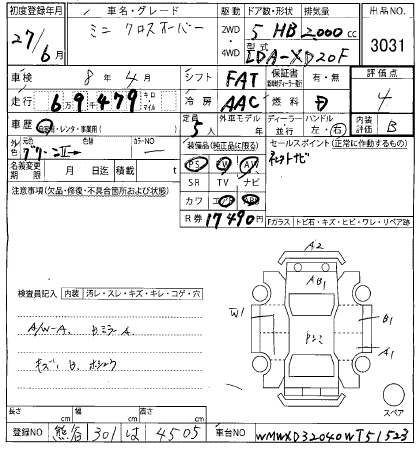 初度登録年月 車名・グレード 駆動 ドア数・形状 排気量 出品NO.
27年6月 ミニ クロスオーバー 2WD 4WD 5 HB 2000cc 3031
型式 LDA-XD20F
車検 8年4月 シフト FAT 保証書 有・無 評価点
走行 6万9千479 キロ・マイル 冷房 AAC 燃料 D 4
車歴 自家用・レンタ・事業用( ) 定員 5人 外車モデル 年 ディーラー 並行 ハンドル 左・右 内装評価 B
外色 元色 色替 カラーNO 装備品(純正品に限る) セールスポイント(正常に作動するもの)
PS PW AW
名義変更期限 月 日迄 積載 t SR TV ナビ
注意事項(欠品・修復・不具合箇所および状態) カワ エアB ABS
R券 17490円 Fガラス トビ石・キズ・ヒビ・ワレ・リペア跡
A2
AB1
検査員記入 内装 汚レ・スレ・キズ・キレ・コゲ・穴
W1 B1
A/W-A.
A1
スペア
長さ cm 幅 cm 高さ cm
登録NO 熊谷 301 は 4505 車台NO WMWXD32040WT51523